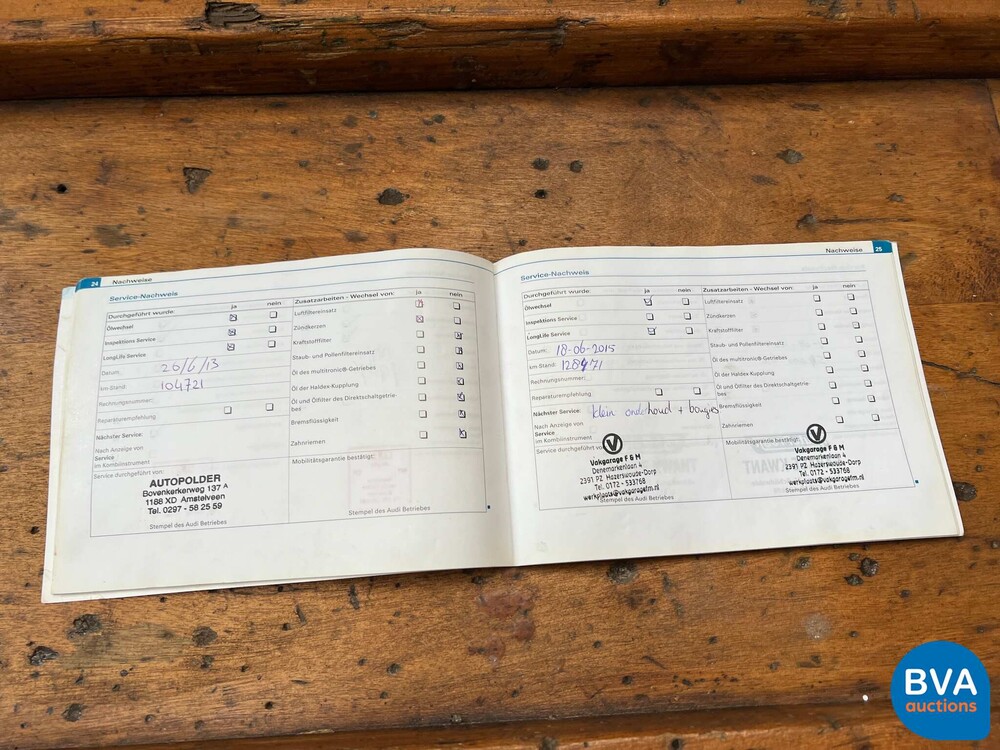 24 Nachweise
Service-Nachweis
Durchgeführt wurde: ja nein
Ölwechsel
Inspektions Service
LongLife Service
Datum: 26/6/13
km-Stand: 104721
Rechnungsnummer:
Reparaturempfehlung
Nächster Service:
Nach Anzeige von
Service
im Kombiinstrument
Service durchgeführt von:
AUTOPOLDER
Bovenkerkerweg 137 A
1188 XD Amstelveen
Tel. 0297 - 58 25 59
Stempel des Audi Betriebes
Zusatzarbeiten - Wechsel von: ja nein
Luftfiltereinsatz
Zündkerzen
Kraftstofffilter
Staub- und Pollenfiltereinsatz
Öl des multitronic®-Getriebes
Öl der Haldex-Kupplung
Öl und Ölfilter des Direktschaltgetrie-
bes
Bremsflüssigkeit
Zahnriemen
Mobilitätsgarantie bestätigt:
Stempel des Audi Betriebes
Nachweise 25
Service-Nachweis
Durchgeführt wurde: ja nein
Ölwechsel
Inspektions Service
LongLife Service
Datum: 18-06-2015
km-Stand: 128471
Rechnungsnummer:
Reparaturempfehlung
Nächster Service: klein onderhoud + bougies
Nach Anzeige von
Service
im Kombiinstrument
Service durchgeführt von:
Vakgarage F & M
Denemarkenlaan 4
2391 PZ Hazerswoude-Dorp
Tel. 0172 - 533768
werkplaats@vakgaragefm.nl
Stempel des Audi Betriebes
Zusatzarbeiten - Wechsel von: ja nein
Luftfiltereinsatz
Zündkerzen
Kraftstofffilter
Staub- und Pollenfiltereinsatz
Öl des multitronic®-Getriebes
Öl der Haldex-Kupplung
Öl und Ölfilter des Direktschaltgetrie-
bes
Bremsflüssigkeit
Zahnriemen
Mobilitätsgarantie bestätigt:
Vakgarage F & M
Denemarkenlaan 4
2391 PZ Hazerswoude-Dorp
Tel. 0172 - 533768
werkplaats@vakgaragefm.nl
Stempel des Audi Betriebes
BVA
auctions